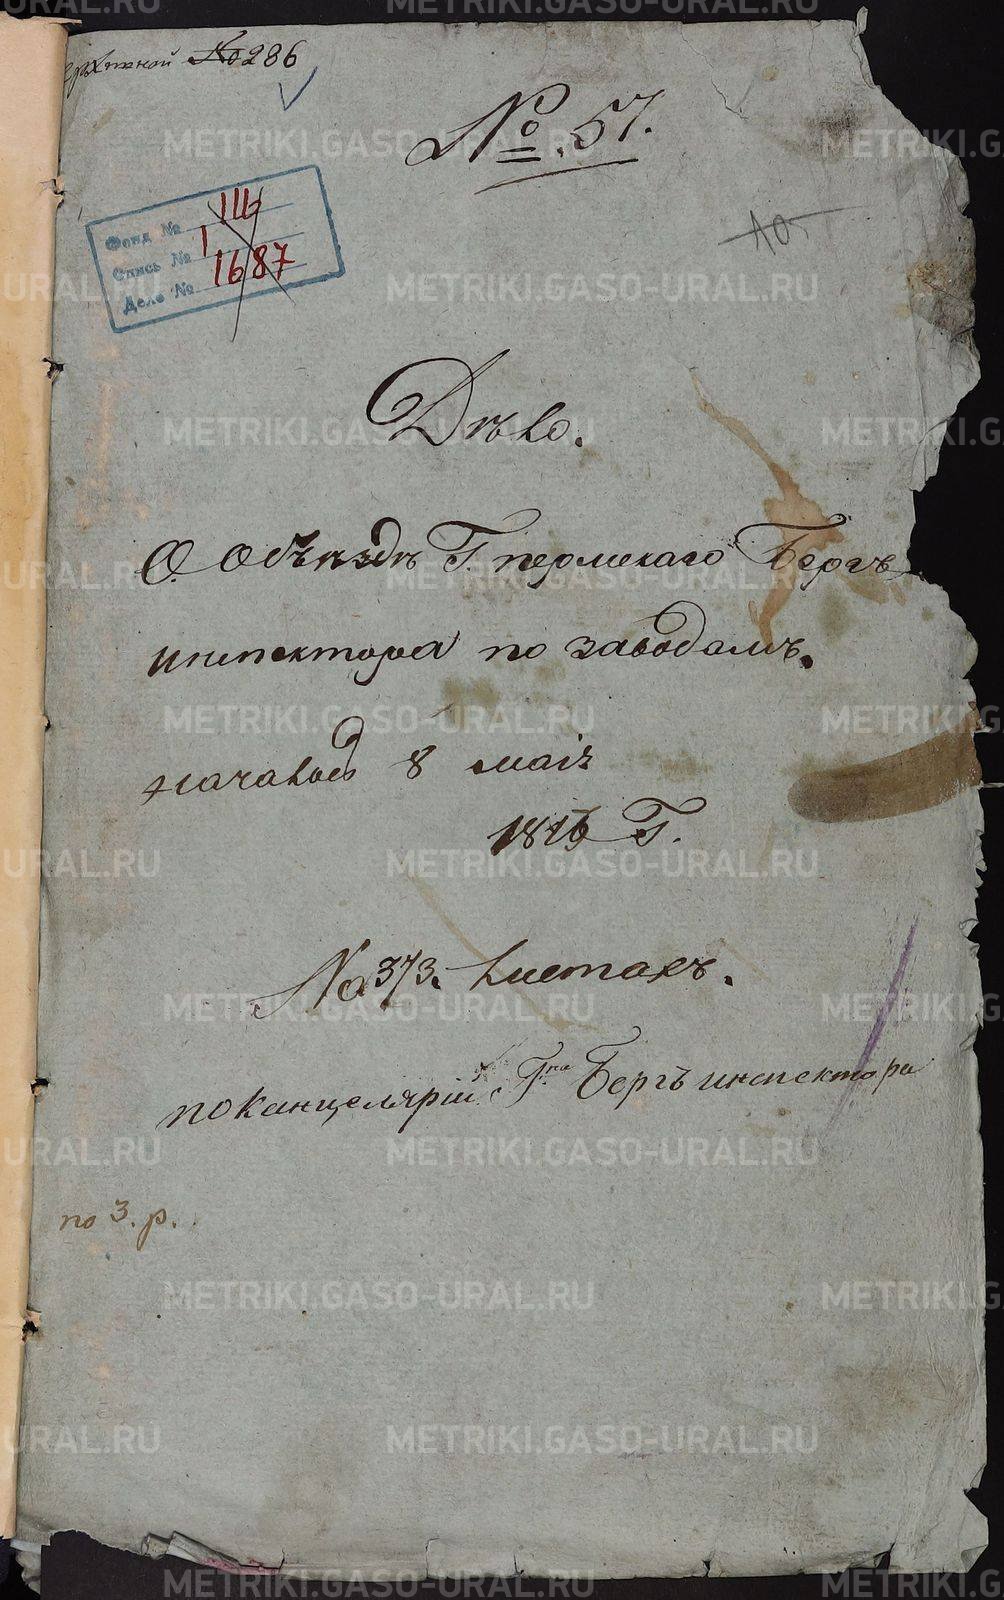 № 286
№ 57.
10
Фонд № III
Опись № 1
Дело № 1687
Дѣло.
О Объѣздѣ Г. пермскаго Бергъ
инспектора по заводамъ.
началось 8 маія
1816 Г.
На 373. листахъ.
по канцеляріи Г.на Бергъ инспектора
по 3. р.
METRIKI.GASO-URAL.RU